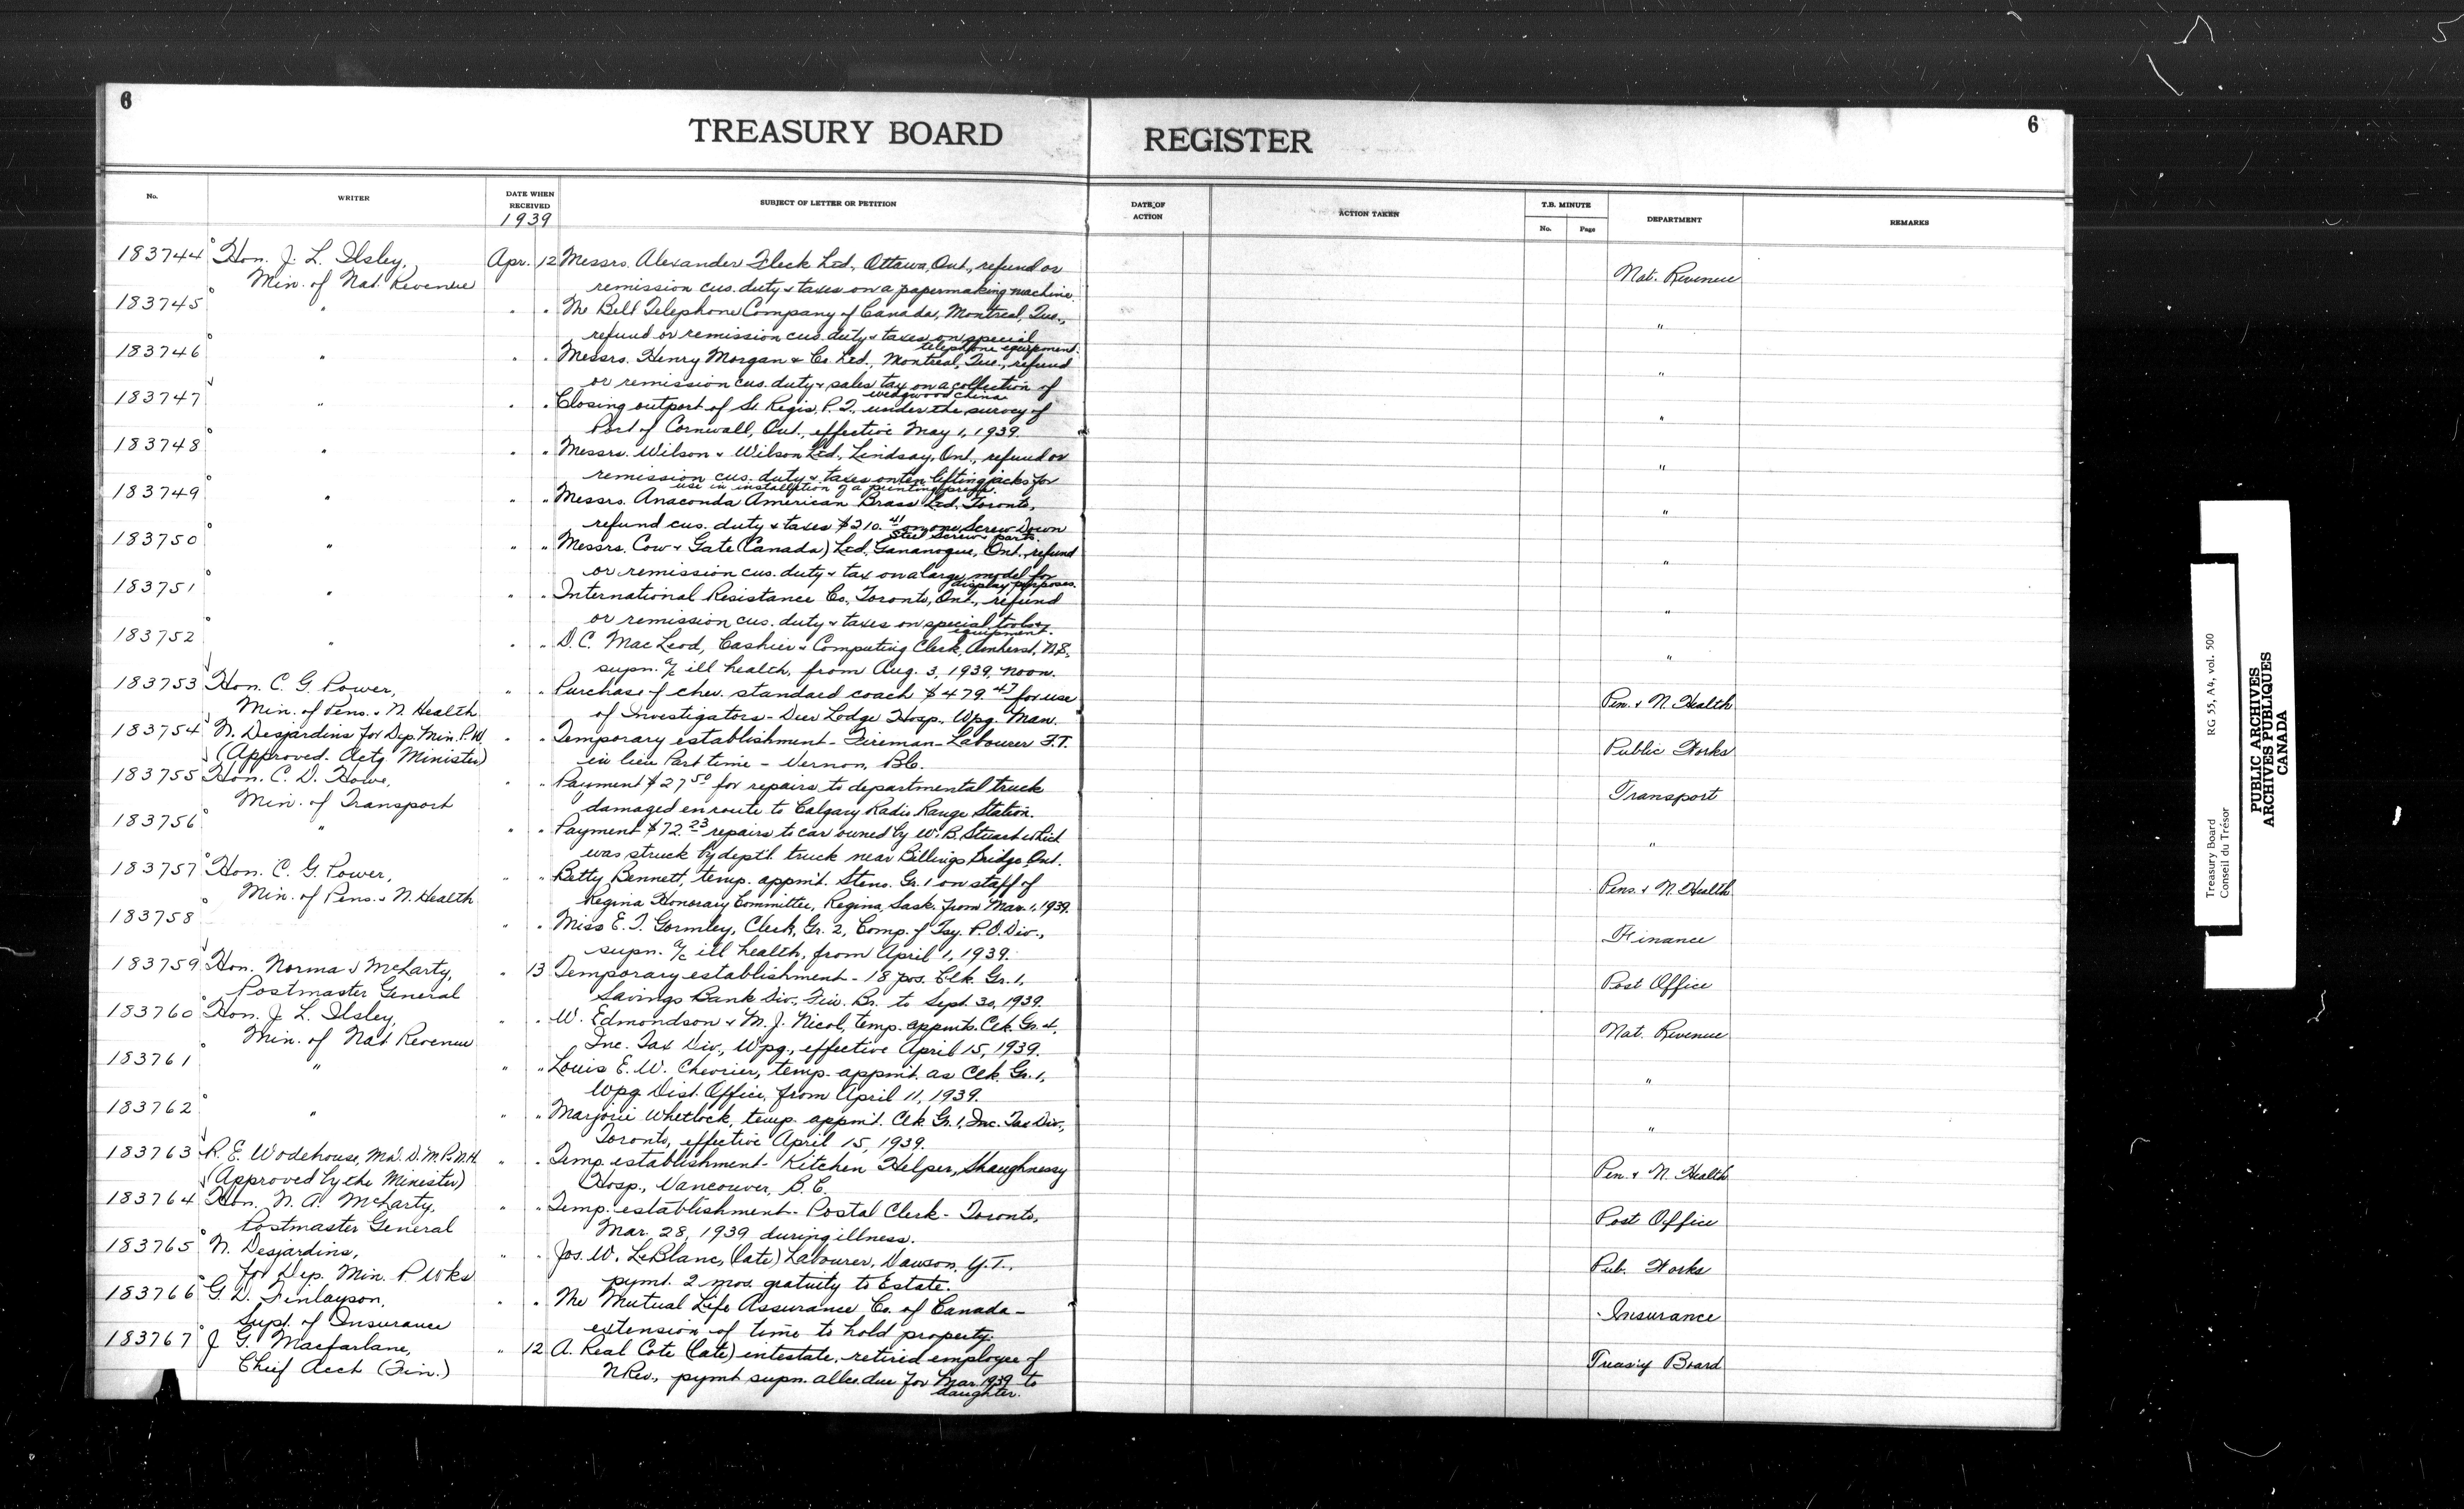 6
6
TREASURY BOARD REGISTER
No.
WRITER
DATE WHEN RECEIVED
1939
SUBJECT OF LETTER OR PETITION
DATE OF ACTION
ACTION TAKEN
T.B. MINUTE
No.
Page
DEPARTMENT
REMARKS
183744 Hon. J. L. Ilsley, Apr. 12 Messrs. Alexander Fleck Ltd., Ottawa, Ont., refund or Nat. Revenue
Min. of Nat. Revenue remission cus. duty & taxes on a papermaking machine.
183745 " " " The Bell Telephone Company of Canada, Montreal, Que., "
refund or remission cus. duty & taxes on special
telephone equipment.
183746 " " " Messrs. Henry Morgan & Co. Ltd., Montreal, Que., refund "
or remission cus. duty & sales tax on a collection of
wedgwood china.
183747 " " " Closing outport of St. Regis, P.Q., under the survey of "
Port of Cornwall, Ont., effective May 1, 1939.
183748 " " " Messrs. Wilson & Wilson Ltd., Lindsay, Ont., refund or "
remission cus. duty & taxes on ten lifting jacks for
use in installation of a printing press.
183749 " " " Messrs. Anaconda American Brass Ltd., Toronto, "
refund cus. duty & taxes $210.41 on one Screw Down
Steel Screw & parts.
183750 " " " Messrs. Cow & Gate (Canada) Ltd., Gananoque, Ont., refund "
or remission cus. duty & tax on a large model for
display purposes.
183751 " " " International Resistance Co., Toronto, Ont., refund "
or remission cus. duty & taxes on special tools &
equipment.
183752 " " " D. C. MacLeod, Cashier & Computing Clerk, Amherst, N.S., "
supn. a/c ill health, from Aug. 3, 1939, noon.
183753 Hon. C. G. Power, " " Purchase of chev. standard coach $479.47 for use Pen. & N. Health
Min. of Pens. & N. Health of Investigators - Deer Lodge Hosp., Wpg. Man.
183754 N. Desjardins for Dep. Min. P.W. " " Temporary establishment - Fireman-Labourer F.T. Public Works
(Approved. Actg. Minister) in lieu Part time - Vernon, B.C.
183755 Hon. C. D. Howe, " " Payment $27.50 for repairs to departmental truck Transport
Min. of Transport damaged en route to Calgary Radio Range Station.
183756 " " " Payment $72.23 repairs to car owned by W. B. Stuart which "
was struck by dept'l. truck near Billings Bridge, Ont.
183757 Hon. C. G. Power, " " Betty Bennett, temp. appmt. Steno. Gr. 1 on staff of Pens. & N. Health
Min. of Pens. & N. Health Regina Honorary Committee, Regina, Sask. from Mar. 1, 1939.
183758 " " Miss E. T. Gormley, Clerk, Gr. 2, Comp. of Tsy. P.O. Div., Finance
supn. a/c ill health, from April 1, 1939.
183759 Hon. Norman McLarty, " 13 Temporary establishment - 18 pos. Clk. Gr. 1, Post Office
Postmaster General Savings Bank Div., Fin. Br. to Sept. 30, 1939.
183760 Hon. J. L. Ilsley, " " W. Edmondson & M. J. Nicol, temp. appmts. Clk. Gr. 4, Nat. Revenue
Min. of Nat. Revenue Inc. Tax Div., Wpg., effective April 15, 1939.
183761 " " " Louis E. W. Chevrier, temp. appmt. as Clk. Gr. 1, "
Wpg. Dist. Office, from April 11, 1939.
183762 " " " Marjorie Whetlock, temp. appmt. Clk. Gr. 1, Inc. Tax Div., "
Toronto, effective April 15, 1939.
183763 R. E. Wodehouse, M.D. D.M. P. & N.H. " " Temp. establishment - Kitchen Helper, Shaughnessy Pen. & N. Health
(Approved by the Minister) Hosp., Vancouver, B.C.
183764 Hon. N. A. McLarty, " " Temp. establishment - Postal Clerk - Toronto, Post Office
Postmaster General Mar. 28, 1939 during illness.
183765 N. Desjardins, " " Jos. W. LeBlanc, (late) Labourer, Dawson, Y.T., Pub. Works
for Dep. Min. P. Wks pymt. 2 mos. gratuity to Estate.
183766 G. D. Finlayson, " " The Mutual Life Assurance Co. of Canada - Insurance
Supt. of Insurance extension of time to hold property.
183767 J. G. Macfarlane, " 12 A. Real Cote (late) intestate, retired employee of Treas'y Board
Chief Acct (Fin.) N Rev., pymt supn. allce. due for Mar. 1939 to
daughter.
Treasury Board
Conseil du Trésor
RG 55, A4, vol. 500
PUBLIC ARCHIVES
ARCHIVES PUBLIQUES
CANADA